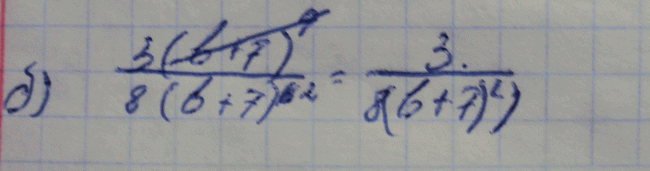 б) 3(b+7)^9 / 8(b+7)^2 = 3 / 8(b+7)^2)